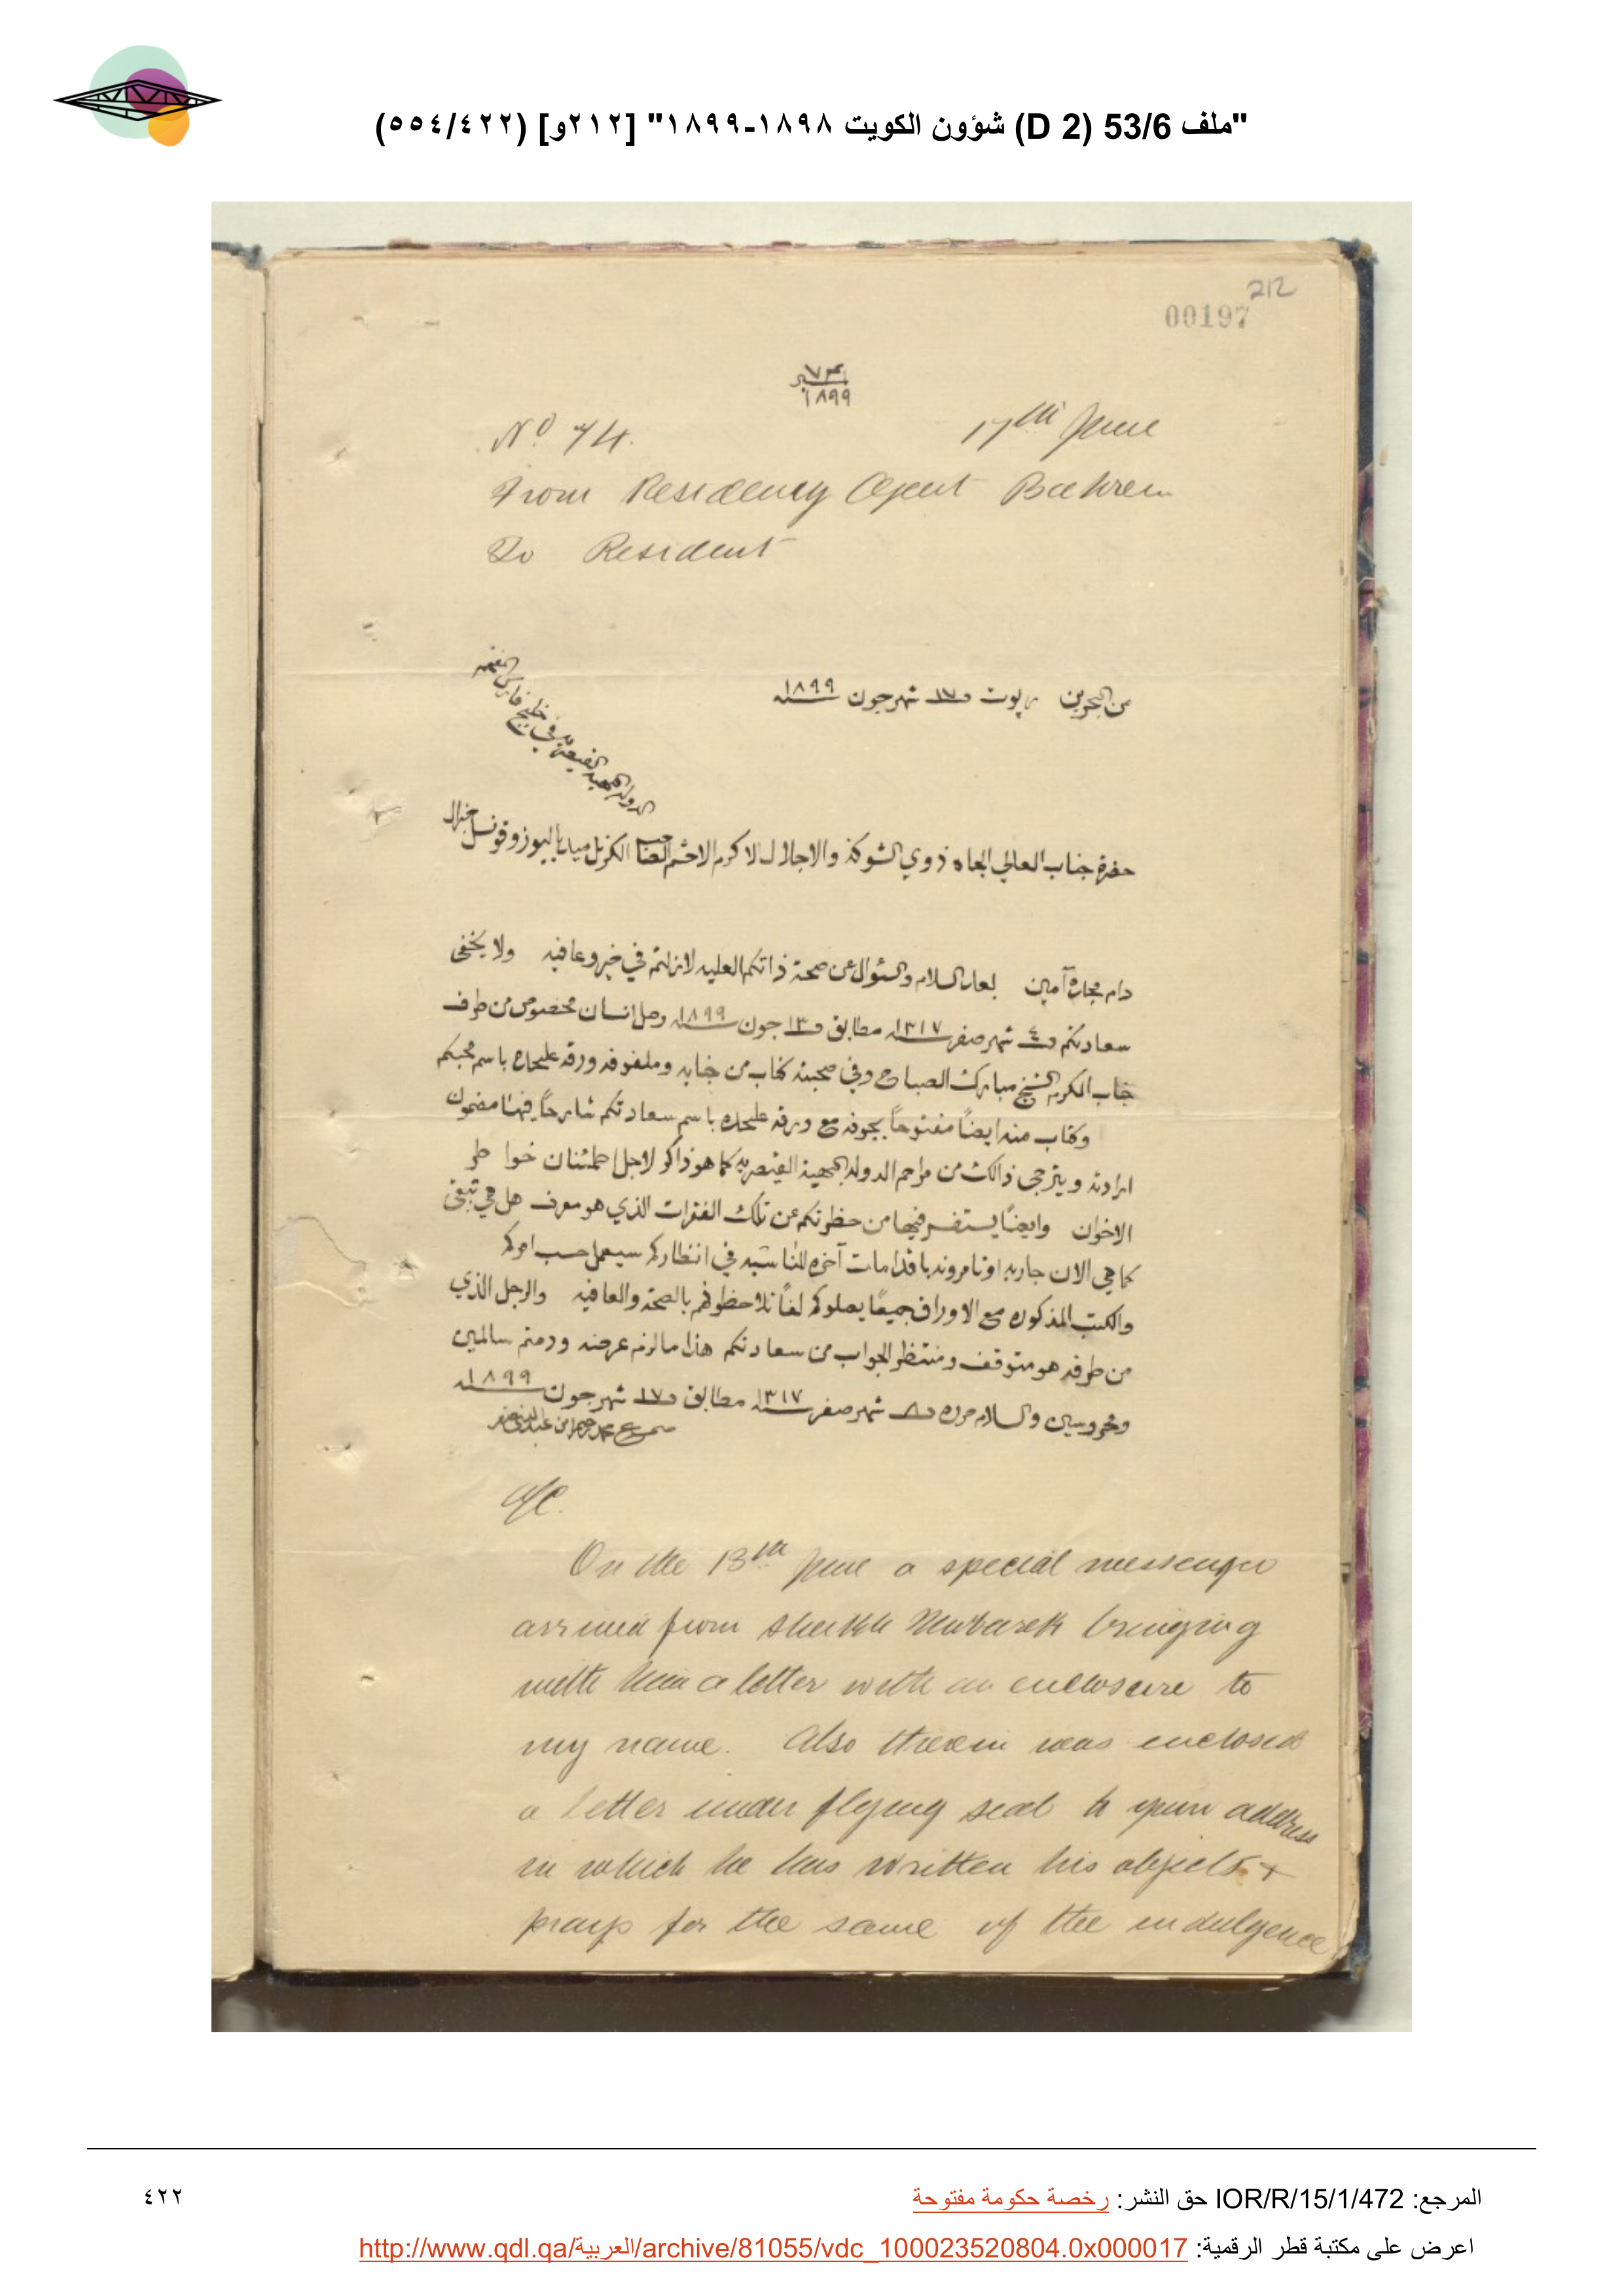 "ملف 53/6 (D 2) شؤون الكويت ١٨٩٨-١٨٩٩" [٢١٢و] (٤٢٢/٥٥٤)
212
00197
نمبر ٧٤
١٨٩٩
No 74. 17th June
From Residency Agent Bahrein
To Resident
من البحرين رپوت في ١٧ شهر جون سنه ١٨٩٩
الدوله البهيه القيصريه في خليج فارس المفخم
حضرة جناب العالي الجاه ذوي الشوكة والاجلال الاكرم الاحشم الصاحب الكرنل ميد باليوز وقونسل جنرال
دام مجده آمين بعد السلام والسئوال عن صحة ذاتكم العليه لازلتم في خير وعافيه ولا يخفى
سعادتكم في ٤ شهر صفر سنه ١٣١٧ مطابق في ١٣ جون سنه ١٨٩٩ وصل انسان مخصوص من طرف
جناب المكرم الشيخ مبارك الصباح وفي صحبته كتاب من جنابه وملفوفه ورقه عليحده باسم محبكم
وكتاب منه ايضاً مفتوحاً بجوفه مع ورقه عليحده باسم سعادتكم شارحاً فيهنا مضمون
ارادته ويترجى ذالك من مراحم الدوله البهية القيصريه كما هو ذاكر لاجل اطمئنان خواطر
الاخوان وايضاً يستفسر فيها من حضرتكم عن تلك الفقرات الذي هو معرف هل هي تبقى
كما هي الان جاريه او تامرونه باقدامات آخره للمناسبه في انتظاركم سيعمل حسب امركم
والكتب المذكوره مع الاوراق جميعاً يصلوكم لفاً تلاحظوهم بالصحة والعافيه والرجل الذي
من طرفه هو متوقف ومنتظر الجواب من سعادتكم هذا ما لزم عرضه ودمتم سالمين
ومحروسين والسلام حرره في ٨ شهر صفر سنه ١٣١٧ مطابق في ١٧ شهر جون سنه ١٨٩٩
محمد رحيم ابن عبدالنبي صفر
A/C.
On the 13th June a special messenger
arrived from Sheikh Mubarek bringing
with him a letter with an enclosure to
my name. Also therein was enclosed
a letter under flying seal to your address
in which he has written his objects &
prays for the same of the indulgence
المرجع: IOR/R/15/1/472 حق النشر: رخصة حكومة مفتوحة
٤٢٢
اعرض على مكتبة قطر الرقمية: http://www.qdl.qa/العربية/archive/81055/vdc_100023520804.0x000017